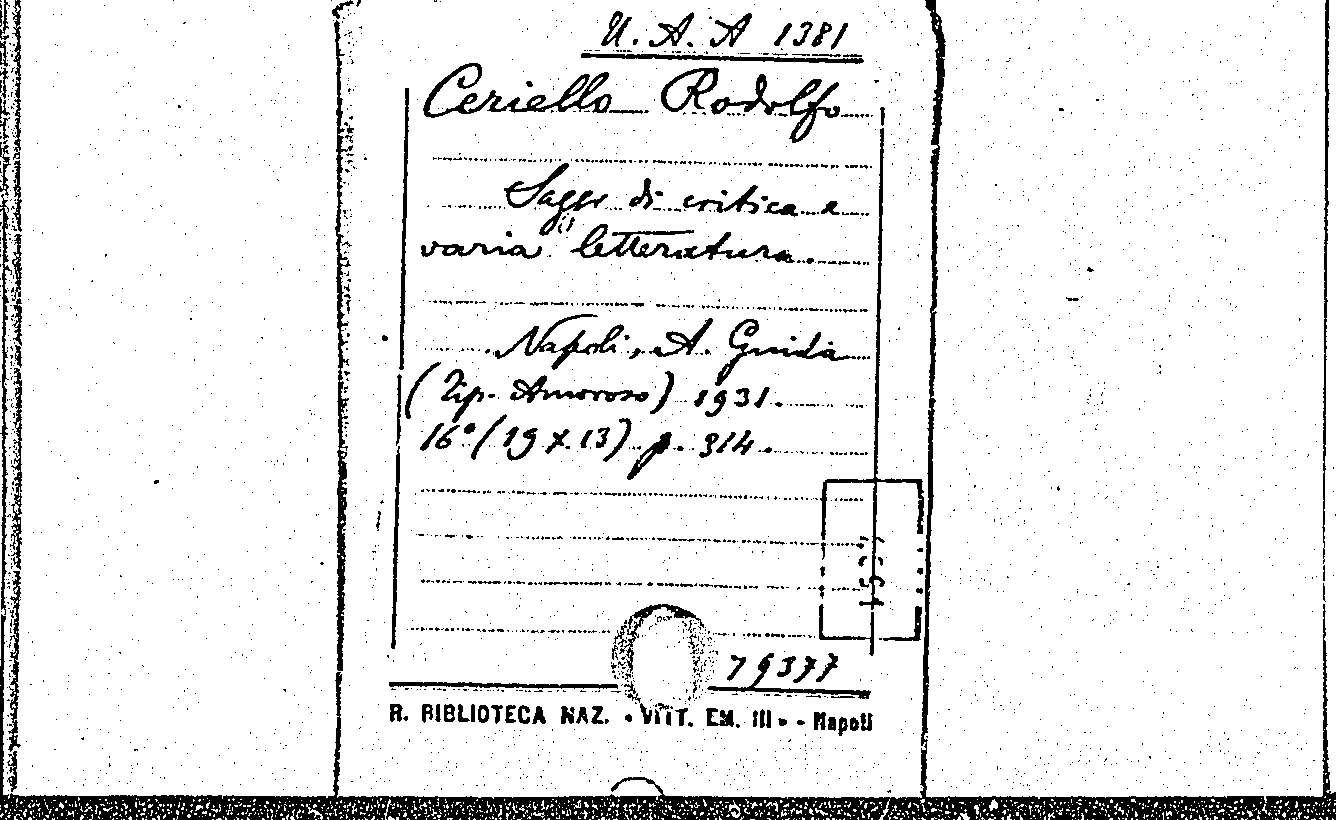 U. A. A 1381
Ceriello Rodolfo
Saggi di critica e
varia letteratura.
Napoli, A. Guida
(Tip. Amoroso) 1931.
16° (19 x 13) p. 314.
79377
R. BIBLIOTECA NAZ. « VITT. EM. III » - Napoli